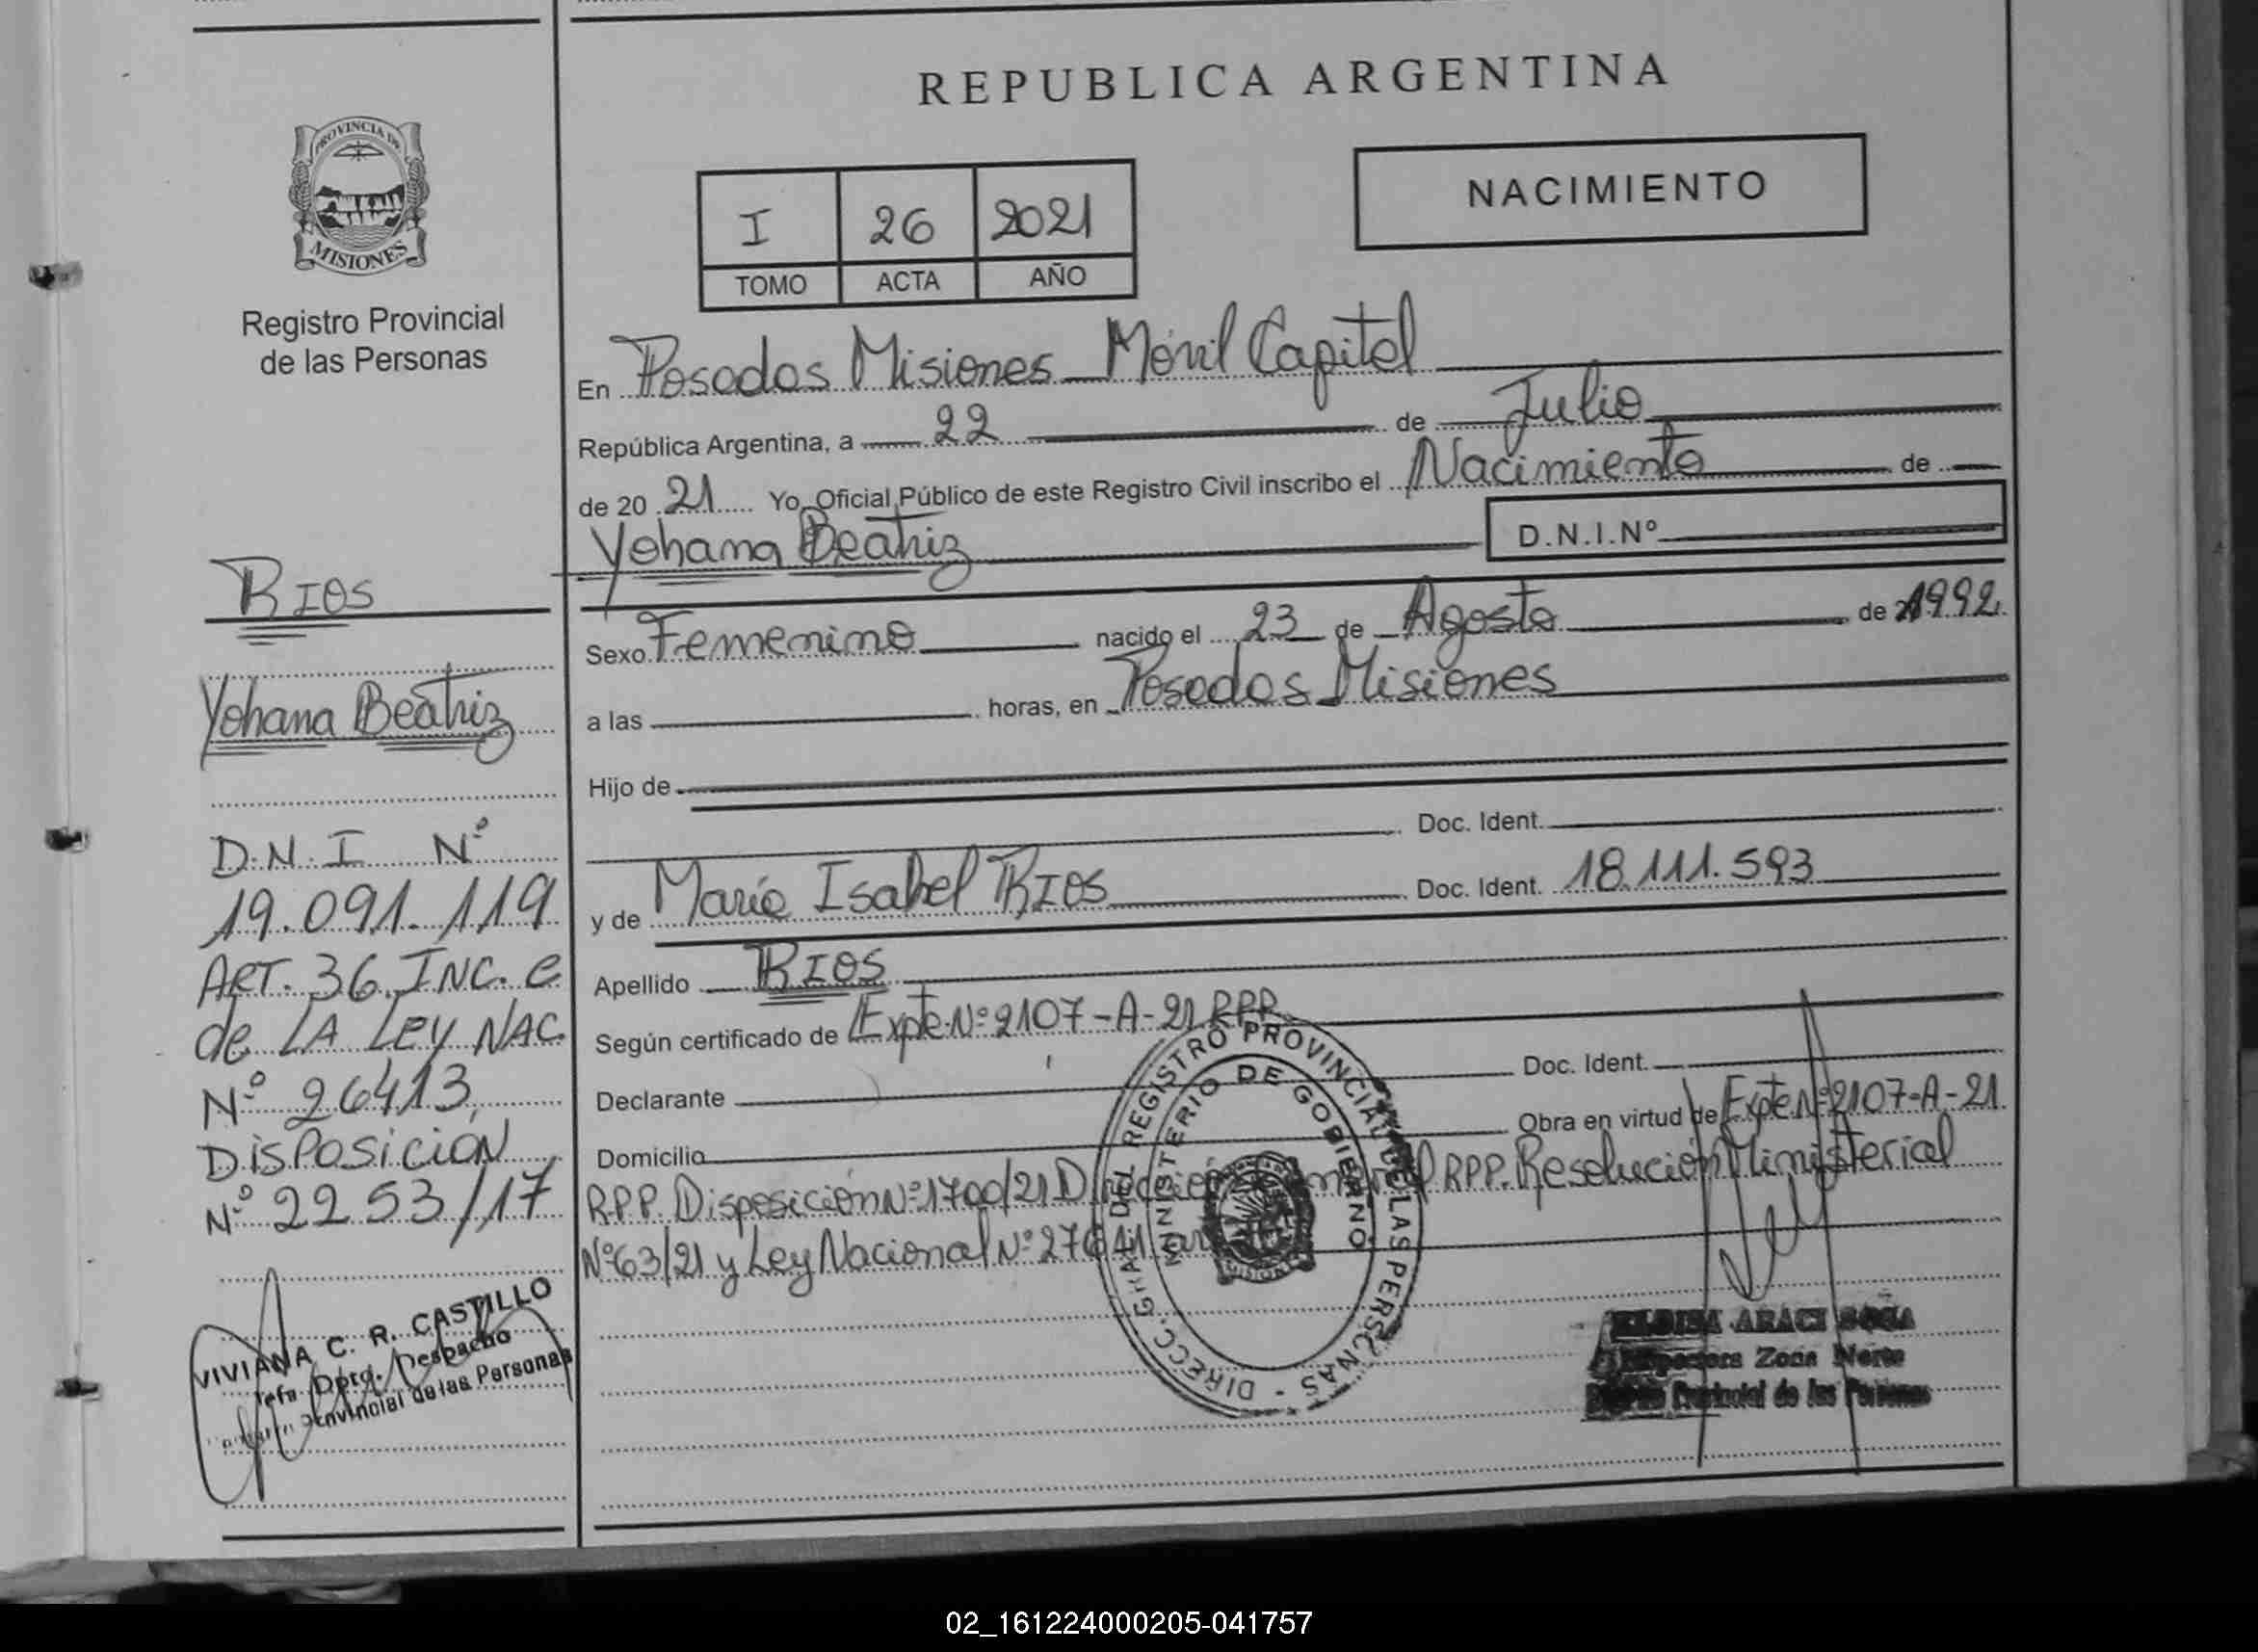 REPUBLICA ARGENTINA
PROVINCIA DE
MISIONES
Registro Provincial
de las Personas
NACIMIENTO
I 26 2021
TOMO ACTA AÑO
En Posadas Misiones Móvil Capital
República Argentina, a 22 de Julio
de 20 21 Yo, Oficial Público de este Registro Civil inscribo el Nacimiento de
Yohana Beatriz D.N.I.Nº
Sexo Femenino nacido el 23 de Agosto de 1992
a las horas, en Posadas Misiones
Hijo de
Doc. Ident.
y de María Isabel RIOS Doc. Ident. 18.111.593
Apellido RIOS
Según certificado de Expte.Nº 2107-A-21 RPP.
Declarante Doc. Ident.
Domicilio Obra en virtud de Expte.Nº2107-A-21
RPP. Disposición Nº1700/21 RPP. Resolución Ministerial
Nº63/21 y Ley Nacional Nº
RIOS
Yohana Beatriz
D.N.I Nº
19.091.119
ART. 36 INC. C
de LA LEY NAC.
Nº 26413,
DISPOSICIÓN
Nº 2253/17
VIVIANA C. R. CASTILLO
Jefa Dpto. Despacho
Provincial de las Personas
DIRECC. GRAL DEL REGISTRO PROVINCIAL DE LAS PERSONAS -
MINISTERIO DE GOBIERNO
MISIONES
ARACI
Zona Norte
Provincial de las Personas
02_161224000205-041757